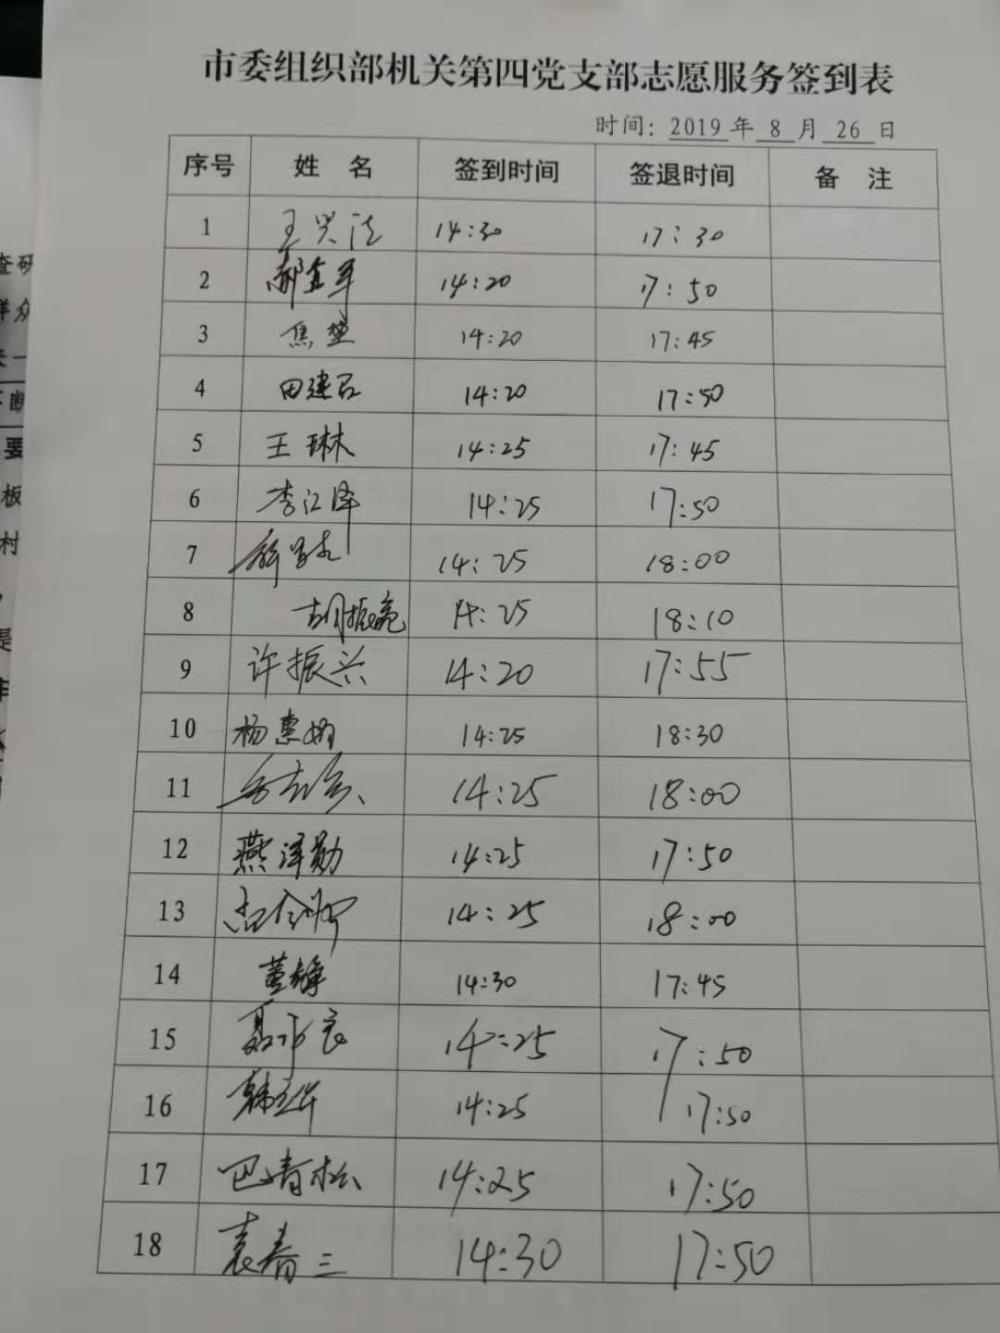 市委组织部机关第四党支部志愿服务签到表
时间: 2019 年 8 月 26 日
序号 姓 名 签到时间 签退时间 备 注
1 王兴法 14:30 17:30
2 14:20 17:50
3 焦楚 14:20 17:45
4 田建石 14:20 17:50
5 王琳 14:25 17:45
6 李江泽 14:25 17:50
7 14:25 18:00
8 胡振亮 14:25 18:10
9 许振兴 14:20 17:55
10 杨惠娟 14:25 18:30
11 14:25 18:00
12 燕泽勋 14:25 17:50
13 14:25 18:00
14 董静 14:30 17:45
15 14:25 17:50
16 14:25 17:50
17 巴青松 14:25 17:50
18 袁春三 14:30 17:50
查研
群众
断
要
板
村
是